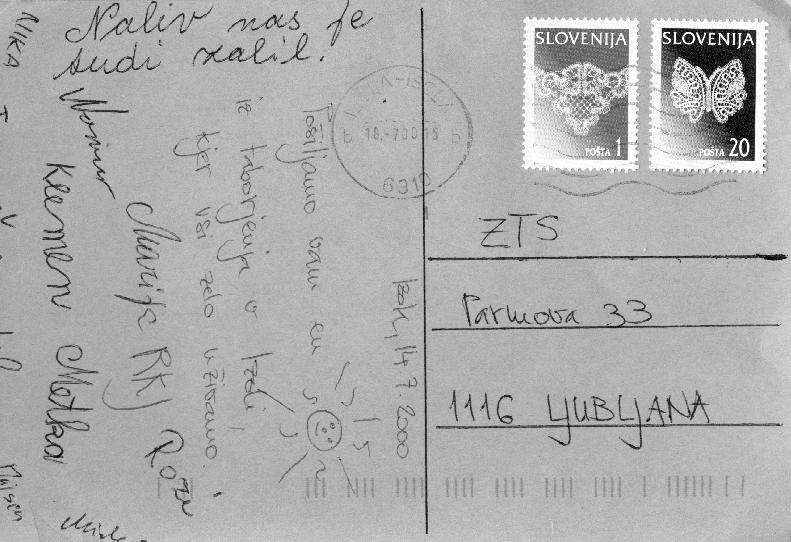 Naliv nas je
tudi zalil.
Izola, 14.7.2000
Pošiljamo vam en
iz taborjenja v Izoli,
kjer vsi zelo uživamo.
NIKA
Klemen Metka
Marija RKJ Roži
SLOVENIJA
POŠTA 1
SLOVENIJA
POŠTA 20
18.-7.00 15
b b
6310
ZTS
Parmova 33
1116 LJUBLJANA